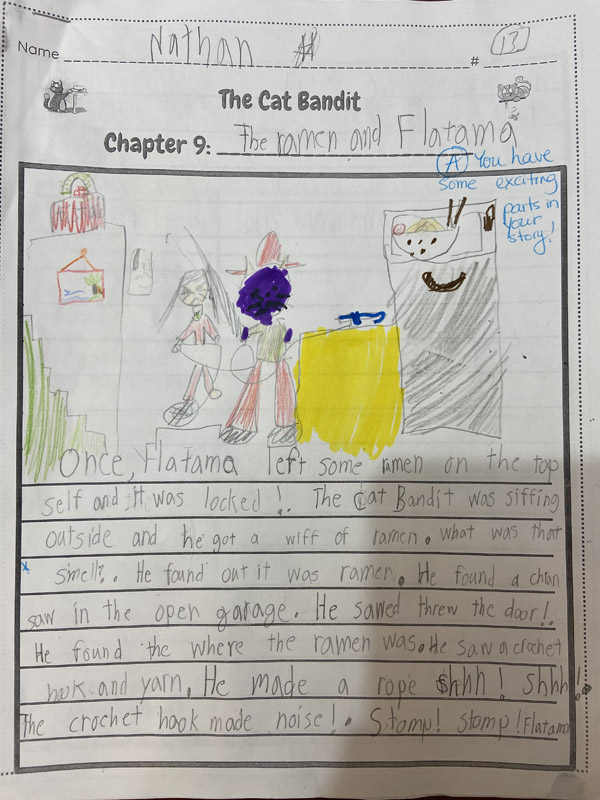 Name Nathan # 13
The Cat Bandit
Chapter 9: The ramen and Flatama
A You have
some exciting
parts in
your
story!
Once, Flatama left some ramen on the top
self and it was locked!. The Cat Bandit was siffing
outside and he got a wiff of ramen. what was that
smell?. He found out it was ramen. He found a chan
saw in the open garage. He sawed threw the door!.
He found the where the ramen was. He saw a crochet
hook and yarn. He made a rope Shhh! Shhh!
The crochet hook made noise!. Stomp! stomp! Flatama